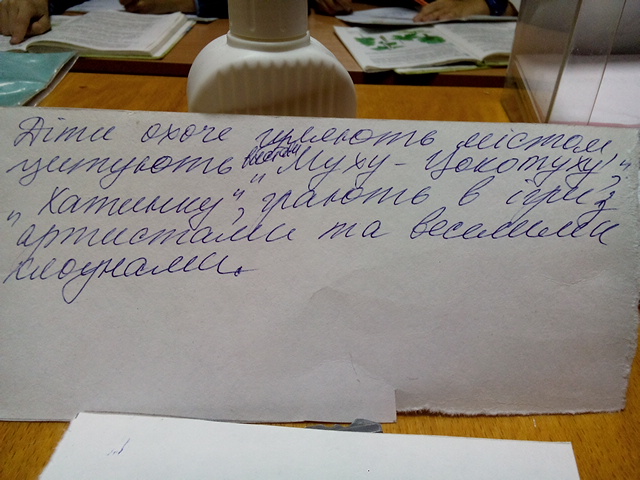 Діти охоче гуляють містом,
цитують „Муху-Цокотуху",
„Хатинку", грають в ігри з
артистами та веселими
клоунами.